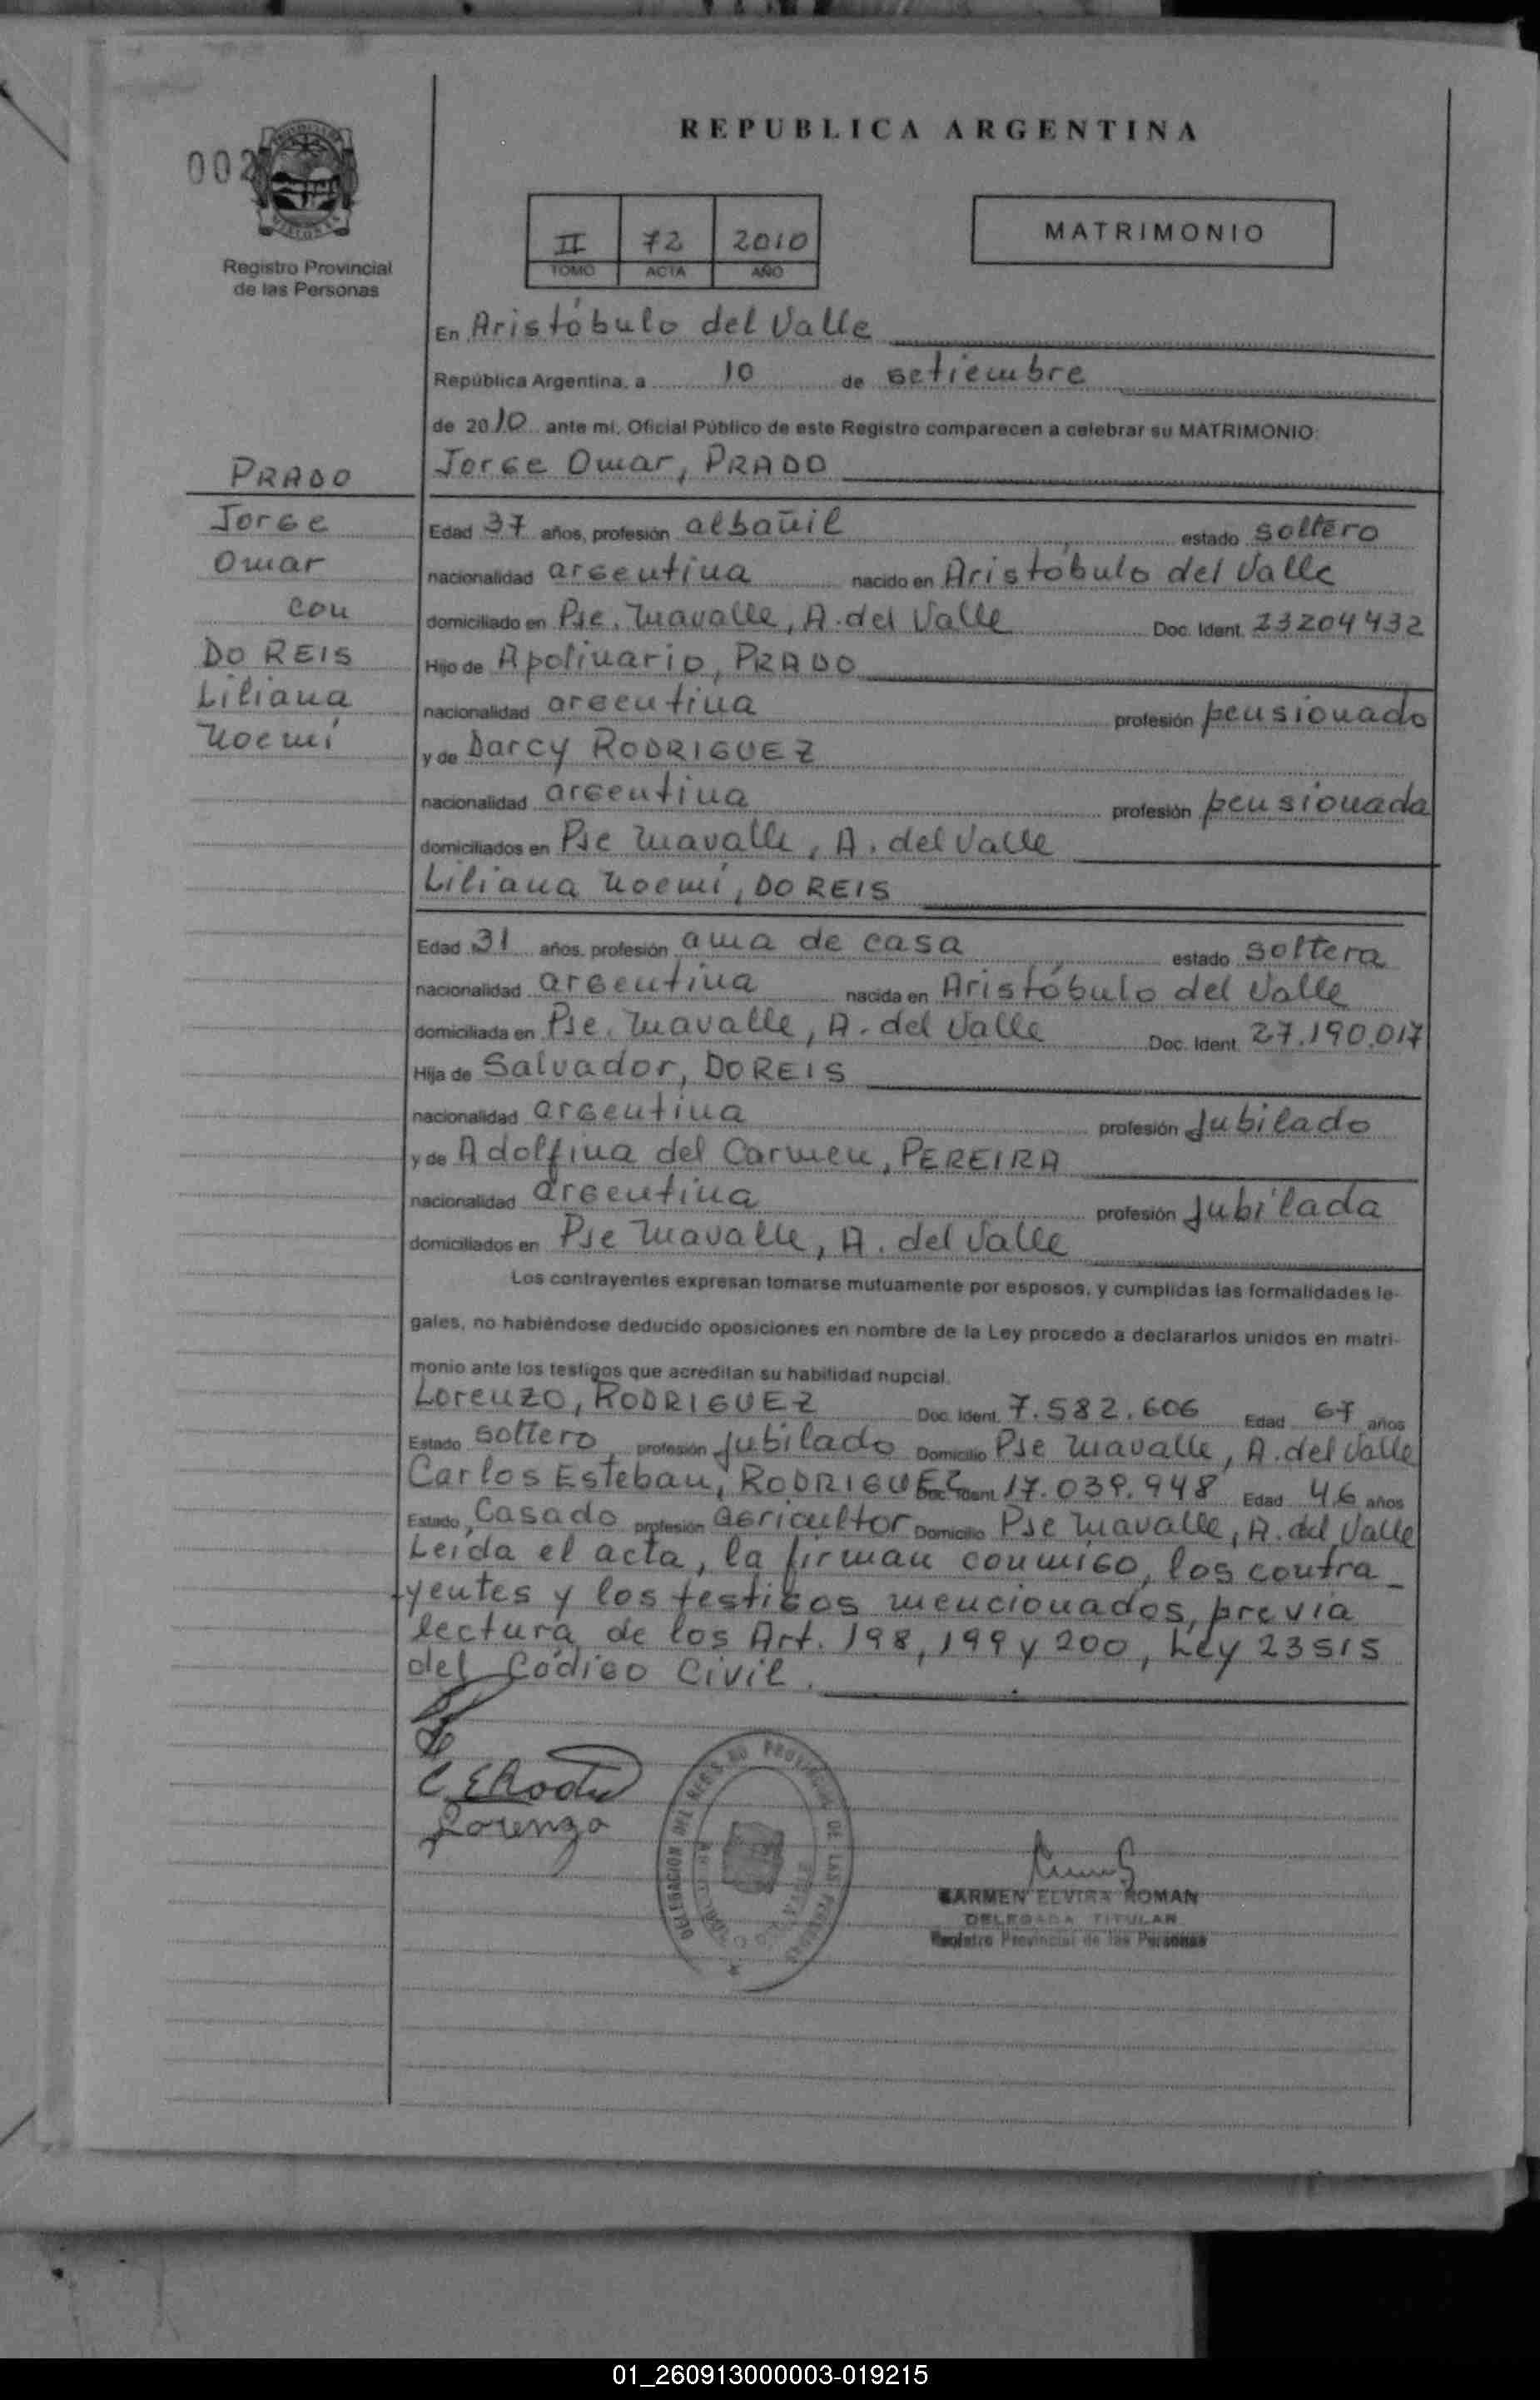 REPUBLICA ARGENTINA
002
Registro Provincial
de las Personas
II 72 2010
TOMO ACTA AÑO
MATRIMONIO
En Aristóbulo del Valle
República Argentina, a 10 de setiembre
de 2010 ante mi, Oficial Público de este Registro comparecen a celebrar su MATRIMONIO:
Jorge Omar, PRADO
PRADO
Jorge
Omar
con
DO REIS
Liliana
Noemí
Edad 37 años, profesión albañil estado soltero
nacionalidad argentina nacido en Aristóbulo del Valle
domiciliado en Pje. Mavalle, A. del Valle Doc. Ident. 23204432
Hijo de Apolinario, PRADO
nacionalidad argentina profesión pensionado
y de Darcy RODRIGUEZ
nacionalidad argentina profesión pensionada
domiciliados en Pje Mavalle, A. del Valle
Liliana Noemí, DO REIS
Edad 31 años, profesión ama de casa estado soltera
nacionalidad argentina nacida en Aristóbulo del Valle
domiciliada en Pje. Mavalle, A. del Valle Doc. Ident. 27.190.017
Hija de Salvador, DO REIS
nacionalidad argentina profesión Jubilado
y de Adolfina del Carmen, PEREIRA
nacionalidad argentina profesión Jubilada
domiciliados en Pje Mavalle, A. del Valle
Los contrayentes expresan tomarse mutuamente por esposos, y cumplidas las formalidades le-
gales, no habiéndose deducido oposiciones en nombre de la Ley procedo a declararlos unidos en matri-
monio ante los testigos que acreditan su habilidad nupcial.
Lorenzo, RODRIGUEZ Doc. Ident. 7.582.606 Edad 67 años
Estado soltero profesión Jubilado Domicilio Pje Mavalle, A. del Valle
Carlos Esteban, RODRIGUEZ Doc. Ident. 17.039.948 Edad 46 años
Estado Casado profesión agricultor Domicilio Pje Mavalle, A. del Valle
Leida el acta, la firman conmigo, los contra_
yentes y los testigos mencionados, previa
lectura de los Art. 198, 199 y 200, Ley 23515
del Código Civil.
Lorenzo
DELEGACION DEL REGISTRO PROVINCIAL DE LAS PERSONAS
CARMEN ELVIRA ROMAN
DELEGADA TITULAR
Registro Provincial de las Personas
01_260913000003-019215